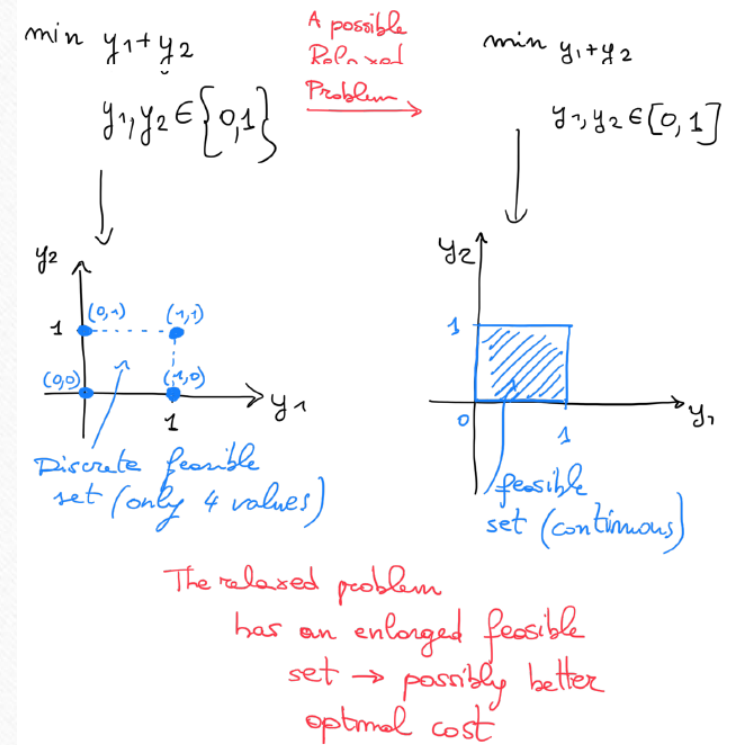 min y₁+y₂
y₁,y₂∈{0,1}
A possible
Relaxed
Problem
min y₁+y₂
y₁,y₂∈[0,1]
y₂
(0,1)
(1,1)
1
(0,0)
(1,0)
y₁
1
Discrete feasible
set (only 4 values)
y₂
1
y₁
0
1
feasible
set (continuous)
The relaxed problem
has an enlarged feasible
set → possibly better
optmal cost